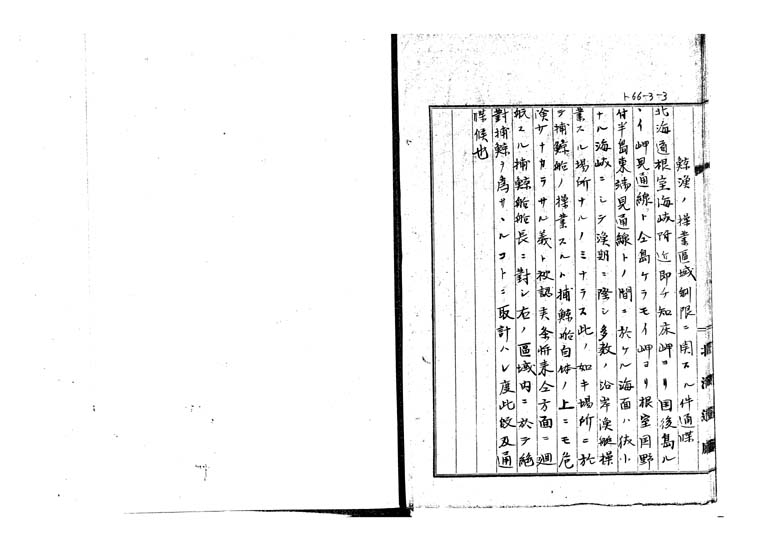 ト66-3-3
鯨漁ノ操業区域制限ニ関スル件通牒
北海道根室海峡附近即チ知床岬ヨリ国後島ル
イ岬見通線ト仝島ケラモイ岬ヨリ根室国野
付半島東端見通線トノ間ニ於ケル海面ハ狭小
ナル海峡ニシテ漁期ニ際シ多数ノ沿岸漁艇操
業スル場所ナルノミナラス此ノ如キ場所ニ於
テ捕鯨船ノ操業スルト捕鯨船自体ノ上ニモ危
険少ナカラサル義ト被認候条将来仝方面ニ廻
航スル捕鯨船船長ニ対シ右ノ区域内ニ於テ絶
対捕鯨ヲ為サヽルコトニ取計ハレ度此段及通
牒候也
北海道庁